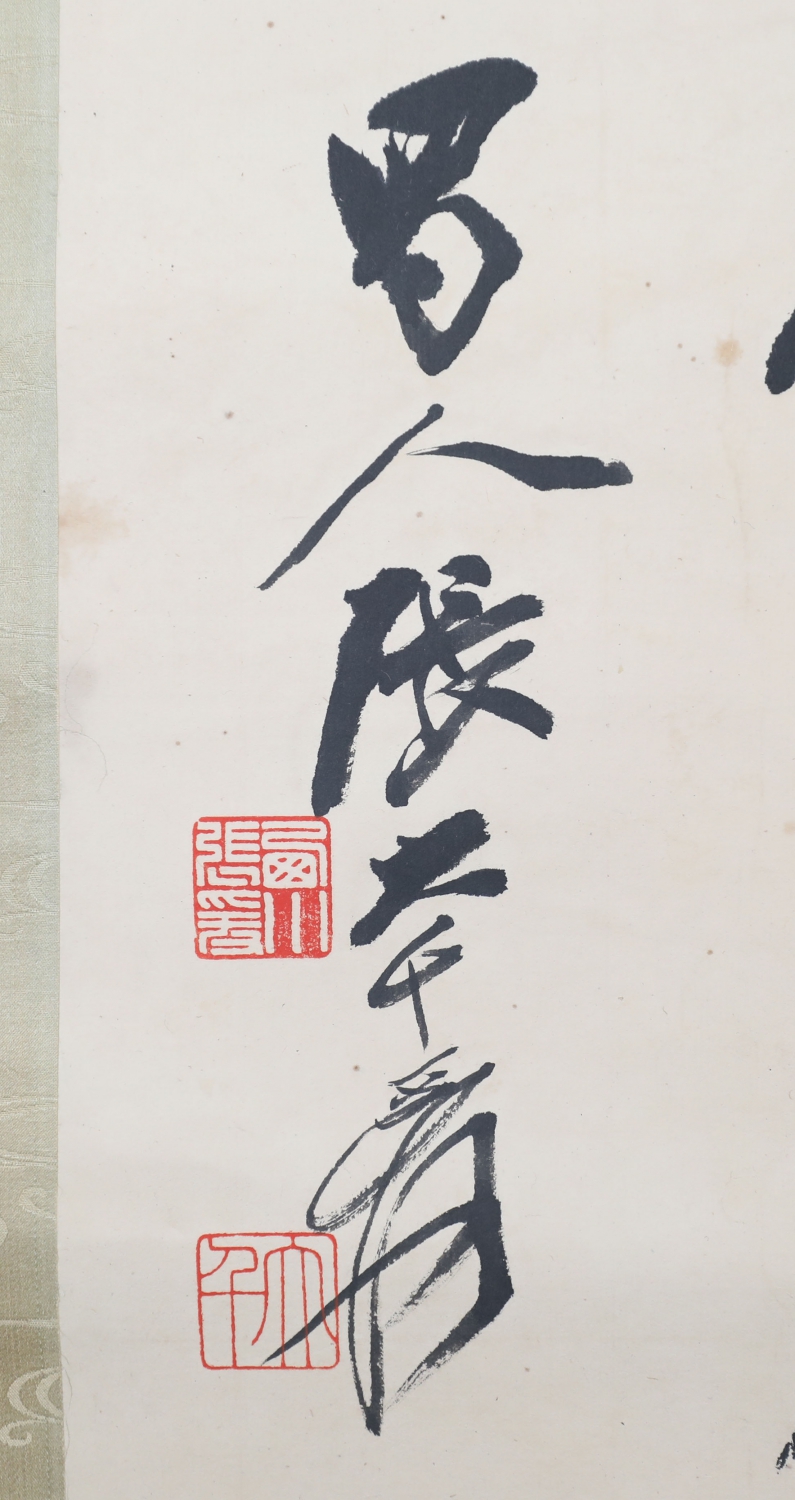 蜀人張大千爰
西川張爰
大千